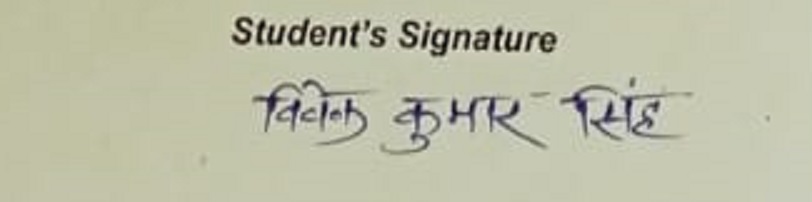 Student's Signature
विवेक कुमार सिंह